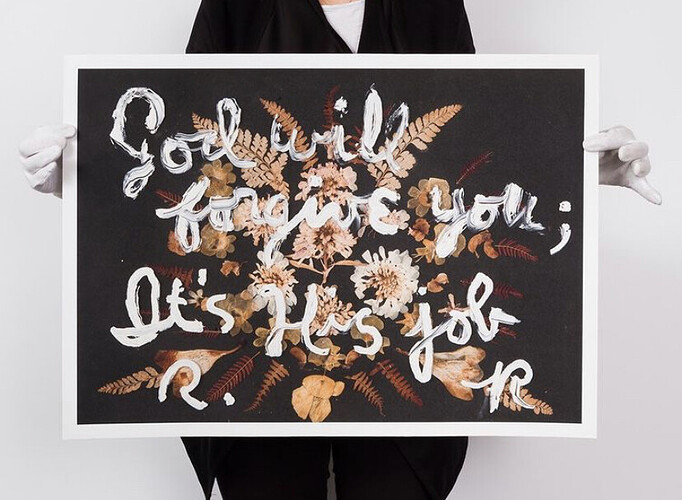 God will
forgive you;
It's His job
R. R